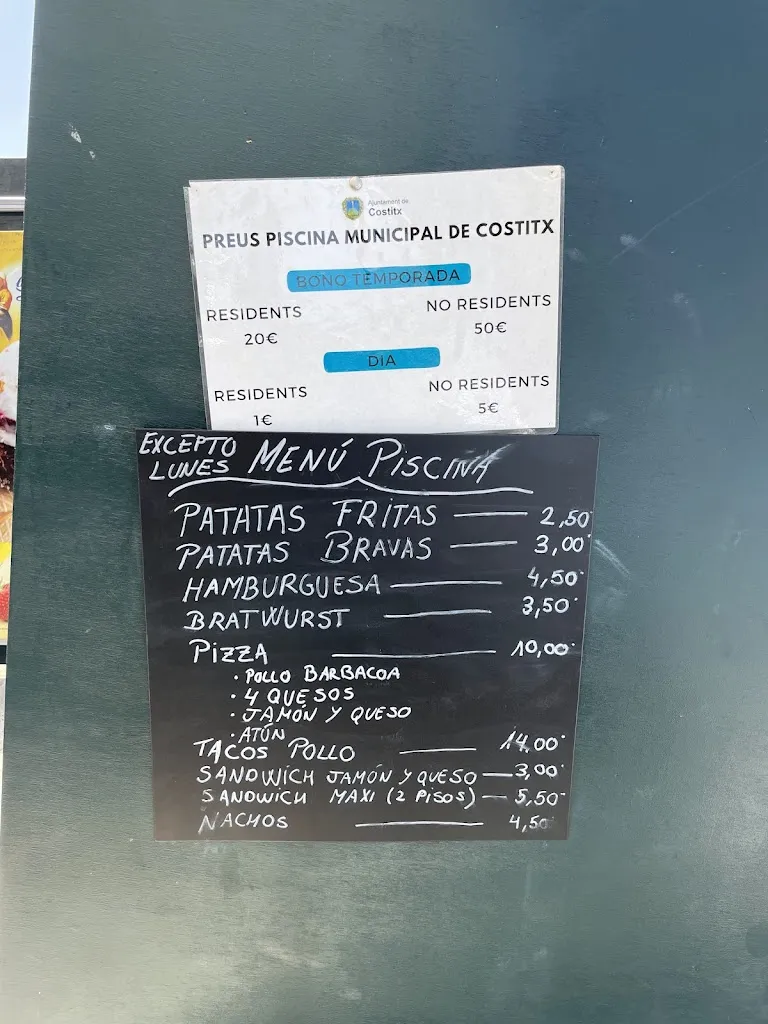 Ajuntament de
Costitx
PREUS PISCINA MUNICIPAL DE COSTITX
BONO TEMPORADA
RESIDENTS NO RESIDENTS
20€ 50€
DIA
RESIDENTS NO RESIDENTS
1€ 5€
EXCEPTO
LUNES MENÚ PISCINA
PATATAS FRITAS — 2,50
PATATAS BRAVAS — 3,00
HAMBURGUESA — 4,50
BRATWURST — 3,50
PIZZA — 10,00
· POLLO BARBACOA
· 4 QUESOS
· JAMÓN Y QUESO
· ATÚN
TACOS POLLO — 14.00
SANDWICH JAMÓN Y QUESO — 3,00
SANDWICH MAXI (2 PISOS) — 5,50
NACHOS — 4,50